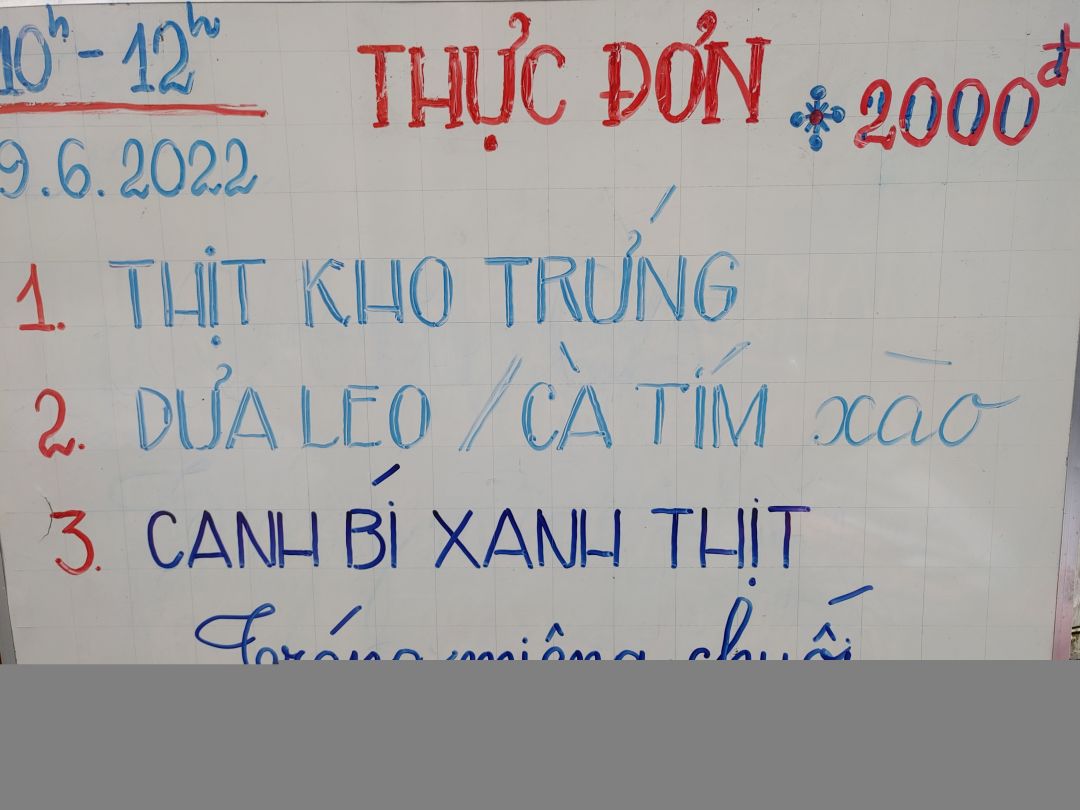 10h - 12h
THỰC ĐƠN * 2000đ
9.6.2022
1. THỊT KHO TRỨNG
2. DƯA LEO / CÀ TÍM xào
3. CANH BÍ XANH THỊT
Tráng miệng chuối